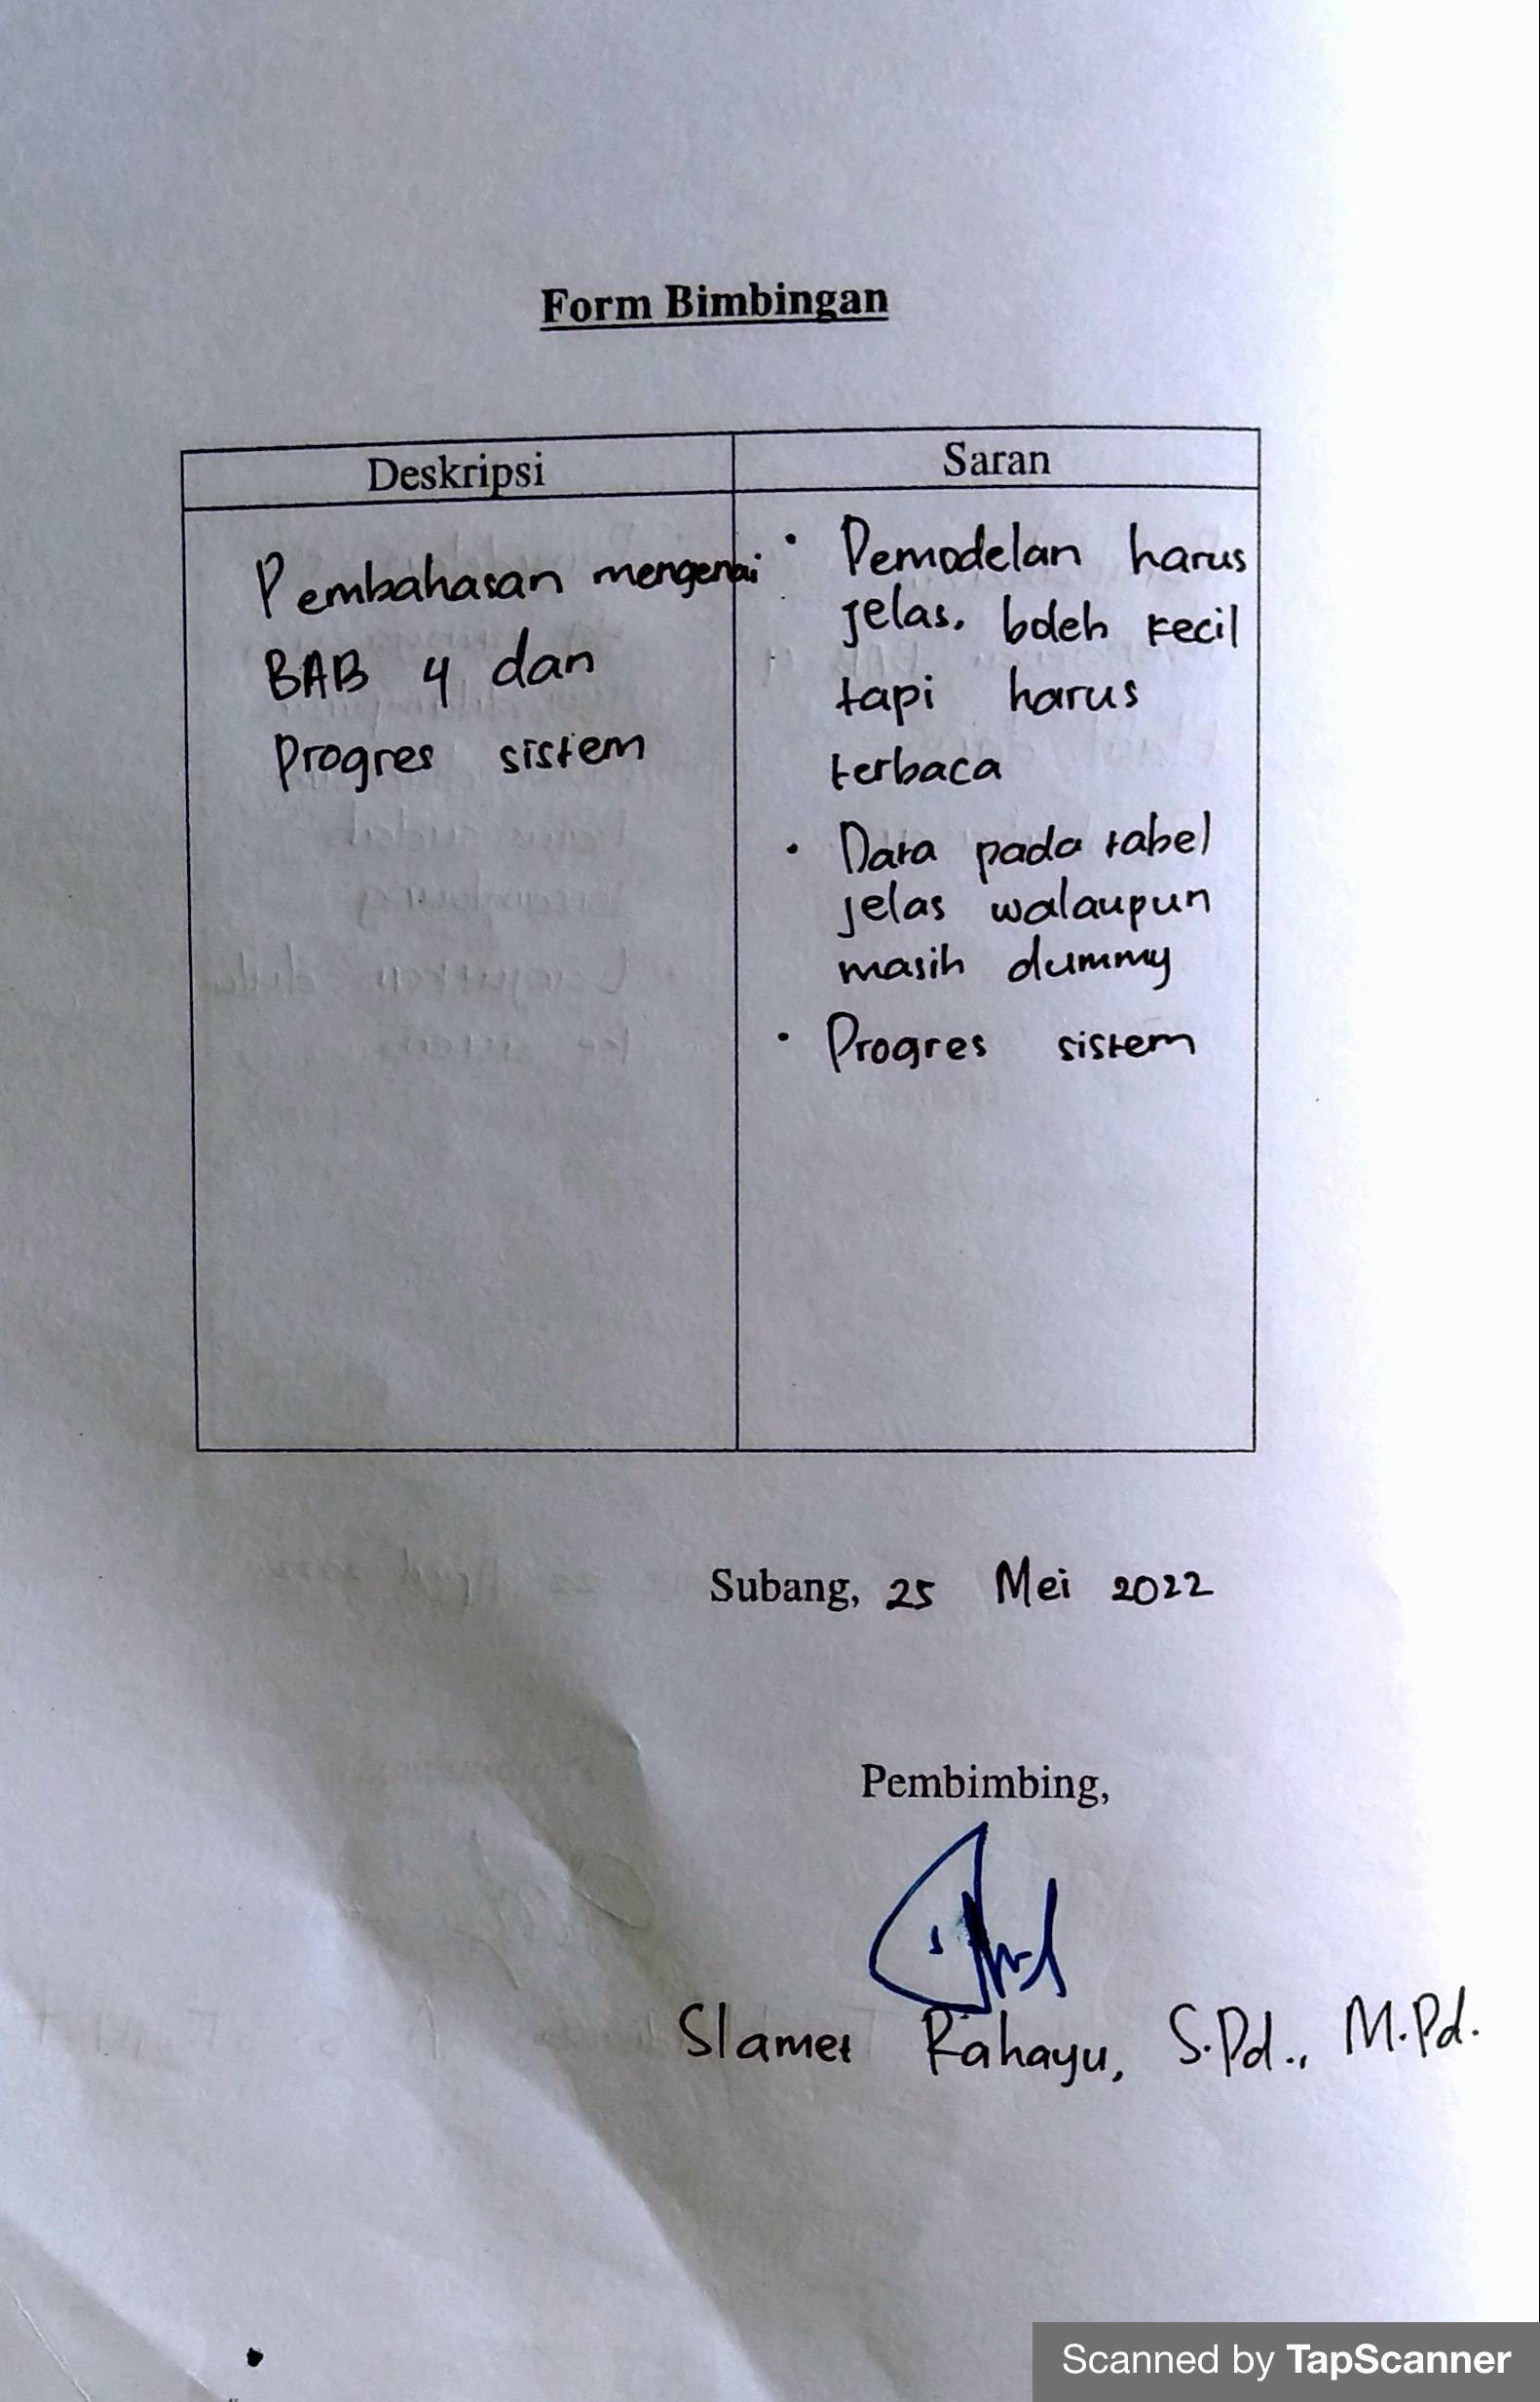 Form Bimbingan
Deskripsi
Saran
Pembahasan mengenai
BAB 4 dan
Progres sistem
• Pemodelan harus
jelas. boleh kecil
tapi harus
terbaca
• Data pada tabel
jelas walaupun
masih dummy
• Progres sistem
Subang, 25 Mei 2022
Pembimbing,
Slamet Rahayu, S.Pd., M.Pd.
Scanned by TapScanner